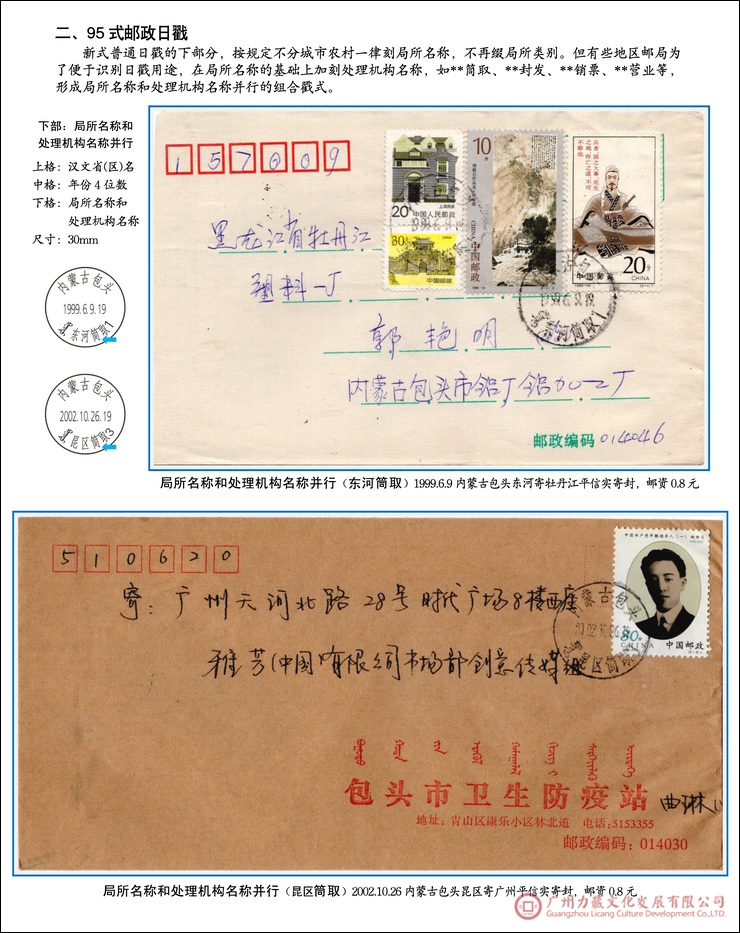 二、95 式邮政日戳
新式普通日戳的下部分，按规定不分城市农村一律刻局所名称，不再缀局所类别。但有些地区邮局为
了便于识别日戳用途，在局所名称的基础上加刻处理机构名称，如**筒取、**封发、**销票、**营业等，
形成局所名称和处理机构名称并行的组合戳式。
下部：局所名称和
处理机构名称并行
上格：汉文省(区)名
中格：年份4位数
下格：局所名称和
处理机构名称
尺寸：30mm
内蒙古包头
1999.6.9.19
东河筒取1
内蒙古包头
2002.10.26.19
昆区筒取3
157009
20分
上海民居
中国人民邮政
30分
中国邮政
10分
中国邮政
CHINA
兵者，国之大事，死生
之地，存亡之道，不可
不察也
中国邮政
CHINA
20分
1999.6.9.19
东河筒取1
黑龙江省牡丹江
塑料一厂
郭艳明
内蒙古包头市铝厂铝加一工厂
邮政编码 014046
局所名称和处理机构名称并行（东河筒取）1999.6.9内蒙古包头东河寄牡丹江平信实寄封，邮资0.8元
510620
80分
CHINA
中国邮政
内蒙古包头
2002.10.26.19
昆区筒取
寄：广州天河北路28号时代广场8楼西座
雅芳(中国)有限公司市场部创意传媒组
包头市卫生防疫站
曲琳
地址：青山区康乐小区林北道 电话：5153355
邮政编码：014030
局所名称和处理机构名称并行（昆区筒取）2002.10.26内蒙古包头昆区寄广州平信实寄封，邮资0.8元
广州力藏文化发展有限公司
Guangzhou Licang Culture Development Co.,LTD.